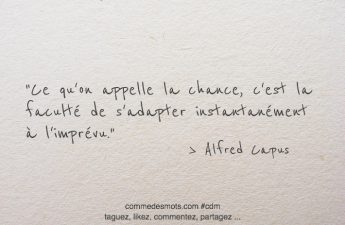 "Ce qu'on appelle la chance, c'est la
faculté de s'adapter instantanément
à l'imprévu."
> Alfred Capus
commedesmots.com #cdm
taguez, likez, commentez, partagez ...